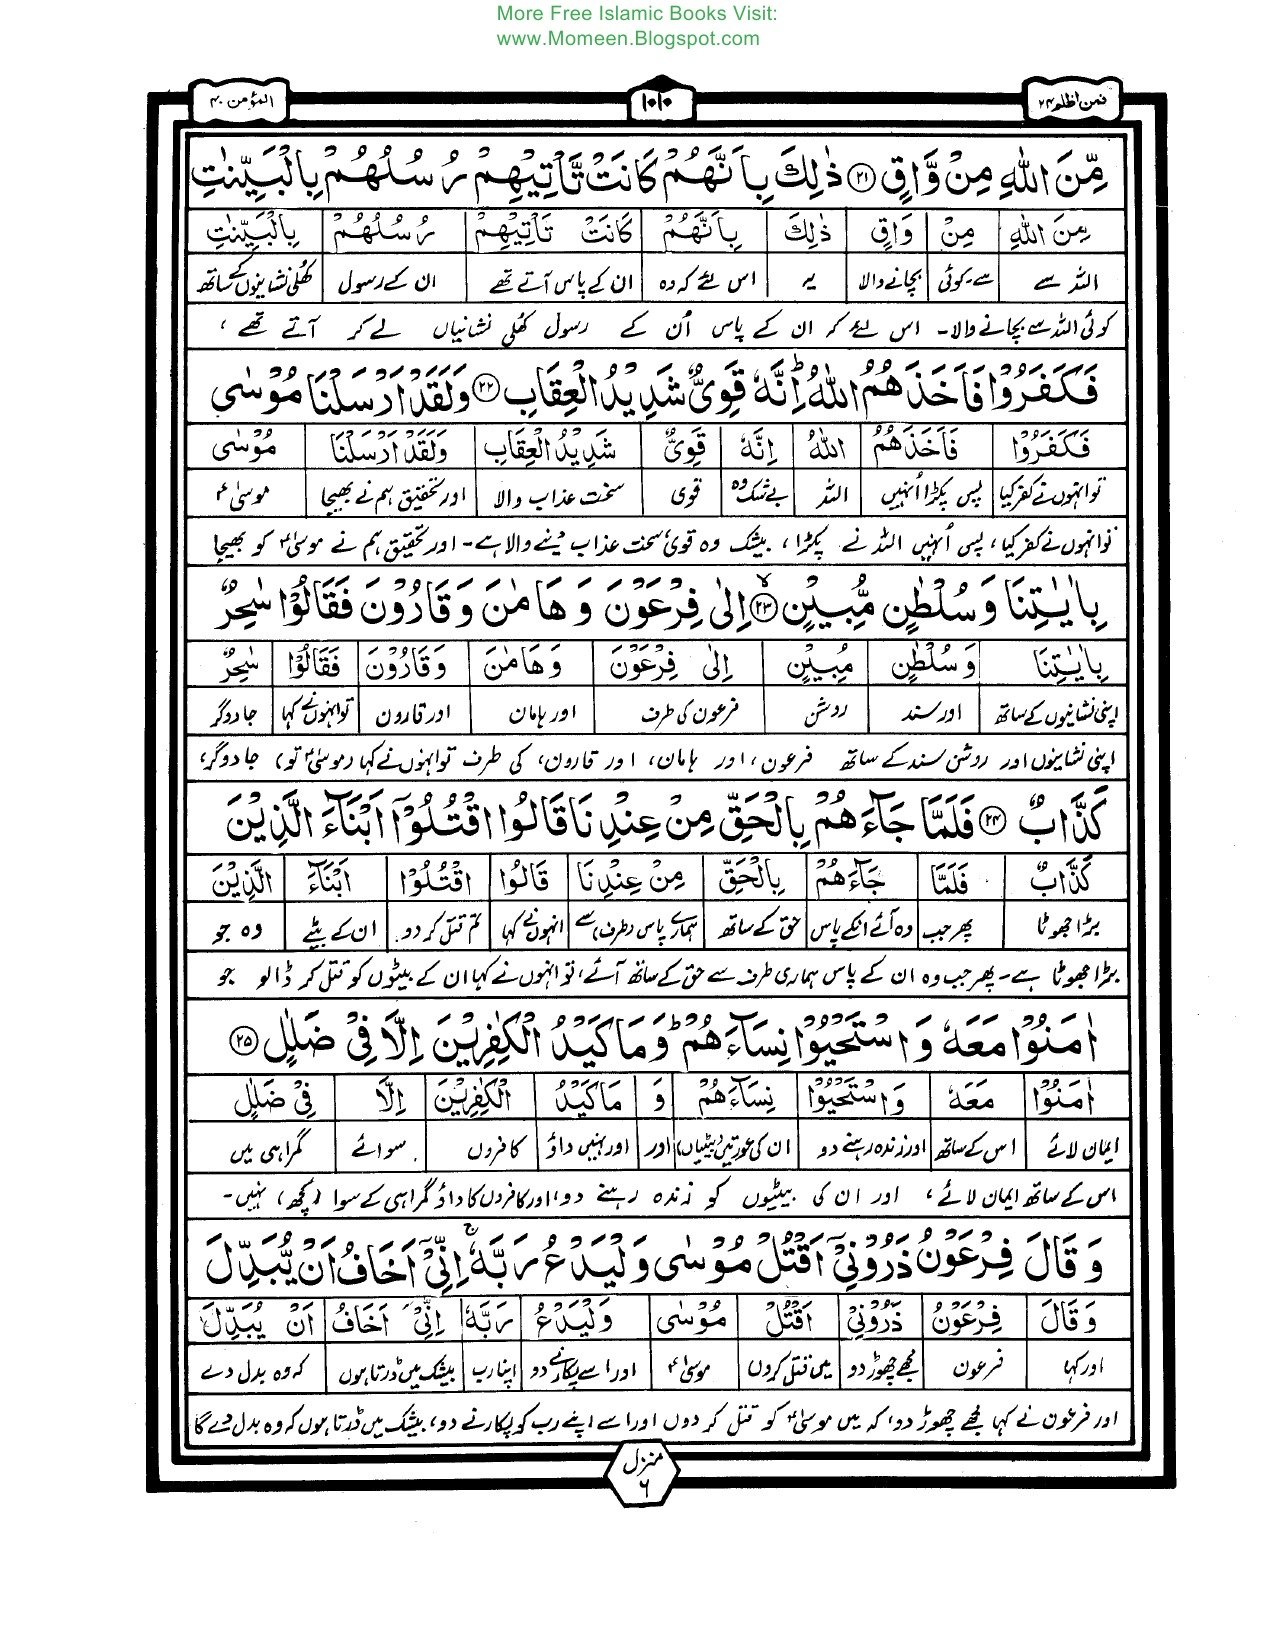 More Free Islamic Books Visit:
www.Momeen.Blogspot.com
فمن اظلم ۲۴
۱۰۱۰
المؤمن ۴۰
مِّنَ اللّٰهِ مِنْ وَّاقٍ ۲۱ ذٰلِكَ بِاَنَّهُمْ كَانَتْ تَّاْتِيْهِمْ رُسُلُهُمْ بِالْبَيِّنٰتِ
مِنَ اللّٰهِ مِنْ وَاقٍ ذٰلِكَ بِاَنَّهُمْ كَانَتْ تَاْتِيْهِمْ رُسُلُهُمْ بِالْبَيِّنٰتِ
اللہ سے سے-کوئی بچانے والا یہ اس لئے کہ وہ ان کے پاس آتے تھے ان کے رسول کھلی نشانیوں کے ساتھ
کوئی اللہ سے بچانے والا- اس لئے کہ ان کے پاس اُن کے رسول کھلی نشانیاں لے کر آتے تھے،
فَكَفَرُوْا فَاَخَذَهُمُ اللّٰهُ ؕ اِنَّهٗ قَوِيٌّ شَدِيْدُ الْعِقَابِ ۲۲ وَلَقَدْ اَرْسَلْنَا مُوْسٰى
فَكَفَرُوْا فَاَخَذَهُمُ اللّٰهُ اِنَّهٗ قَوِيٌّ شَدِيْدُ الْعِقَابِ وَلَقَدْ اَرْسَلْنَا مُوْسٰى
تو انہوں نے کفر کیا پس پکڑا اُنہیں اللہ بے شک وہ قوی سخت عذاب والا اور تحقیق ہم نے بھیجا موسیٰؑ
تو انہوں نے کفر کیا، پس اُنہیں اللہ نے پکڑا، بیشک وہ قوی سخت عذاب دینے والا ہے- اور تحقیق ہم نے موسیٰؑ کو بھیجا
بِاٰيٰتِنَا وَسُلْطٰنٍ مُّبِيْنٍ ۲۳ ۙ اِلٰى فِرْعَوْنَ وَهَامٰنَ وَقَارُوْنَ فَقَالُوْا سٰحِرٌ
بِاٰيٰتِنَا وَسُلْطٰنٍ مُبِيْنٍ اِلٰى فِرْعَوْنَ وَهَامٰنَ وَقَارُوْنَ فَقَالُوْا سٰحِرٌ
اپنی نشانیوں کے ساتھ اور سند روشن فرعون کی طرف اور ہامان اور قارون تو انہوں نے کہا جادوگر
اپنی نشانیوں اور روشن سند کے ساتھ فرعون، اور ہامان، اور قارون، کی طرف تو انہوں نے کہا (موسیٰؑ تو) جادوگر،
كَذَّابٌ ۲۴ فَلَمَّا جَآءَهُمْ بِالْحَقِّ مِنْ عِنْدِنَا قَالُوا اقْتُلُوْٓا اَبْنَآءَ الَّذِيْنَ
كَذَّابٌ فَلَمَّا جَآءَهُمْ بِالْحَقِّ مِنْ عِنْدِنَا قَالُوا اقْتُلُوْا اَبْنَآءَ الَّذِيْنَ
بڑا جھوٹا پھر جب وہ آئے انکے پاس حق کے ساتھ ہمارے پاس (طرف) سے انہوں نے کہا تم قتل کر دو ان کے بیٹے وہ جو
بڑا جھوٹا ہے- پھر جب وہ ان کے پاس ہماری طرف سے حق کے ساتھ آئے، تو انہوں نے کہا ان کے بیٹوں کو قتل کر ڈالو جو
اٰمَنُوْا مَعَهٗ وَاسْتَحْيُوْا نِسَآءَهُمْ ؕ وَمَا كَيْدُ الْكٰفِرِيْنَ اِلَّا فِيْ ضَلٰلٍ ۲۵
اٰمَنُوْا مَعَهٗ وَاسْتَحْيُوْا نِسَآءَهُمْ وَ مَا كَيْدُ الْكٰفِرِيْنَ اِلَّا فِيْ ضَلٰلٍ
ایمان لائے اس کے ساتھ اور زندہ رہنے دو ان کی عورتیں (بیٹیاں) اور اور نہیں داؤ کافروں سوائے گمراہی میں
اس کے ساتھ ایمان لائے، اور ان کی بیٹیوں کو زندہ رہنے دو، اور کافروں کا داؤ گمراہی کے سوا (کچھ) نہیں-
وَقَالَ فِرْعَوْنُ ذَرُوْنِيْٓ اَقْتُلْ مُوْسٰى وَلْيَدْعُ رَبَّهٗ ۚ اِنِّيْٓ اَخَافُ اَنْ يُّبَدِّلَ
وَقَالَ فِرْعَوْنُ ذَرُوْنِيْ اَقْتُلْ مُوْسٰى وَلْيَدْعُ رَبَّهٗ اِنِّيْٓ اَخَافُ اَنْ يُبَدِّلَ
اور کہا فرعون مجھے چھوڑ دو میں قتل کروں موسیٰؑ اور اسے پکارنے دو اپنا رب بیشک میں ڈرتا ہوں کہ وہ بدل دے
اور فرعون نے کہا مجھے چھوڑ دو، کہ میں موسیٰؑ کو قتل کر دوں اور اسے اپنے رب کو پکارنے دو، بیشک میں ڈرتا ہوں کہ وہ بدل دے گا
منزل
۶